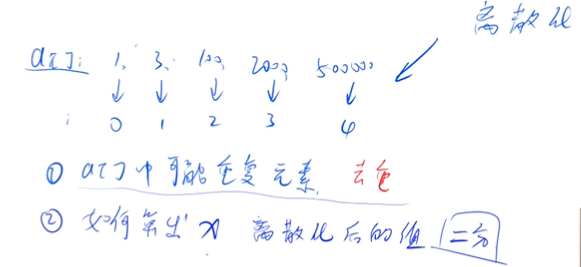 离散化
a[]: 1, 3, 100, 2000, 500000
↓ ↓ ↓ ↓ ↓
i 0 1 2 3 4
① a[]中可能重复元素, 去重
② 如何算出 x 离散化后的值 二分